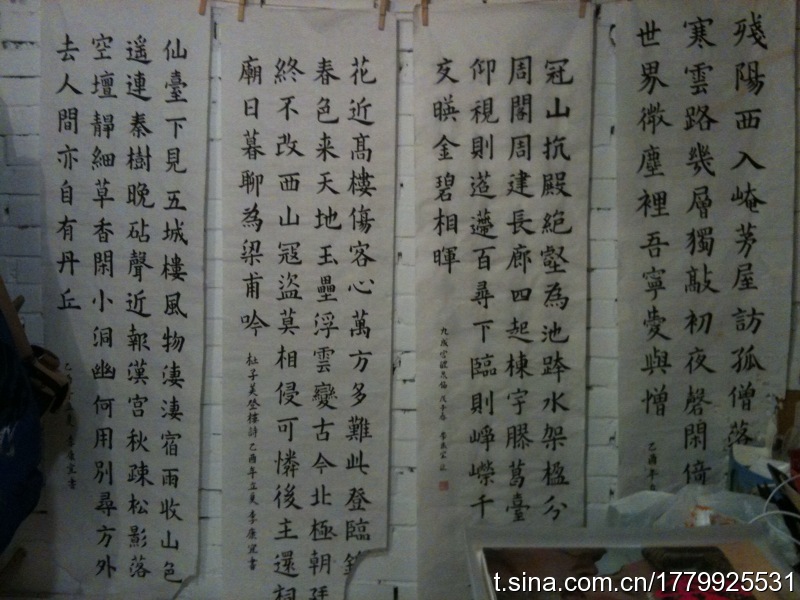 残陽西入崦茅屋訪孤僧落
寒雲路幾層獨敲初夜磬閑倚
世界微塵裡吾寧愛與憎
乙酉年
冠山抗殿絕壑為池跨水架楹分
周閣周建長廊四起棟宇膠葛臺
仰視則迢遰百尋下臨則崢嶸千
交暎金碧相暉
九成宮醴泉銘 戊子春 李康宜
花近高樓傷客心萬方多難此登臨錦
春色来天地玉壘浮雲變古今北極朝廷
終不改西山寇盜莫相侵可憐後主還祠
廟日暮聊為梁甫吟
杜子美登樓詩乙酉年立夏 李康宜書
仙臺下見五城樓風物淒淒宿雨收山色
遥連秦樹晚砧聲近報漢宮秋疎松影落
空壇靜細草香閑小洞幽何用別尋方外
去人間亦自有丹丘
乙酉年立夏 李康宜書
t.sina.com.cn/1779925531